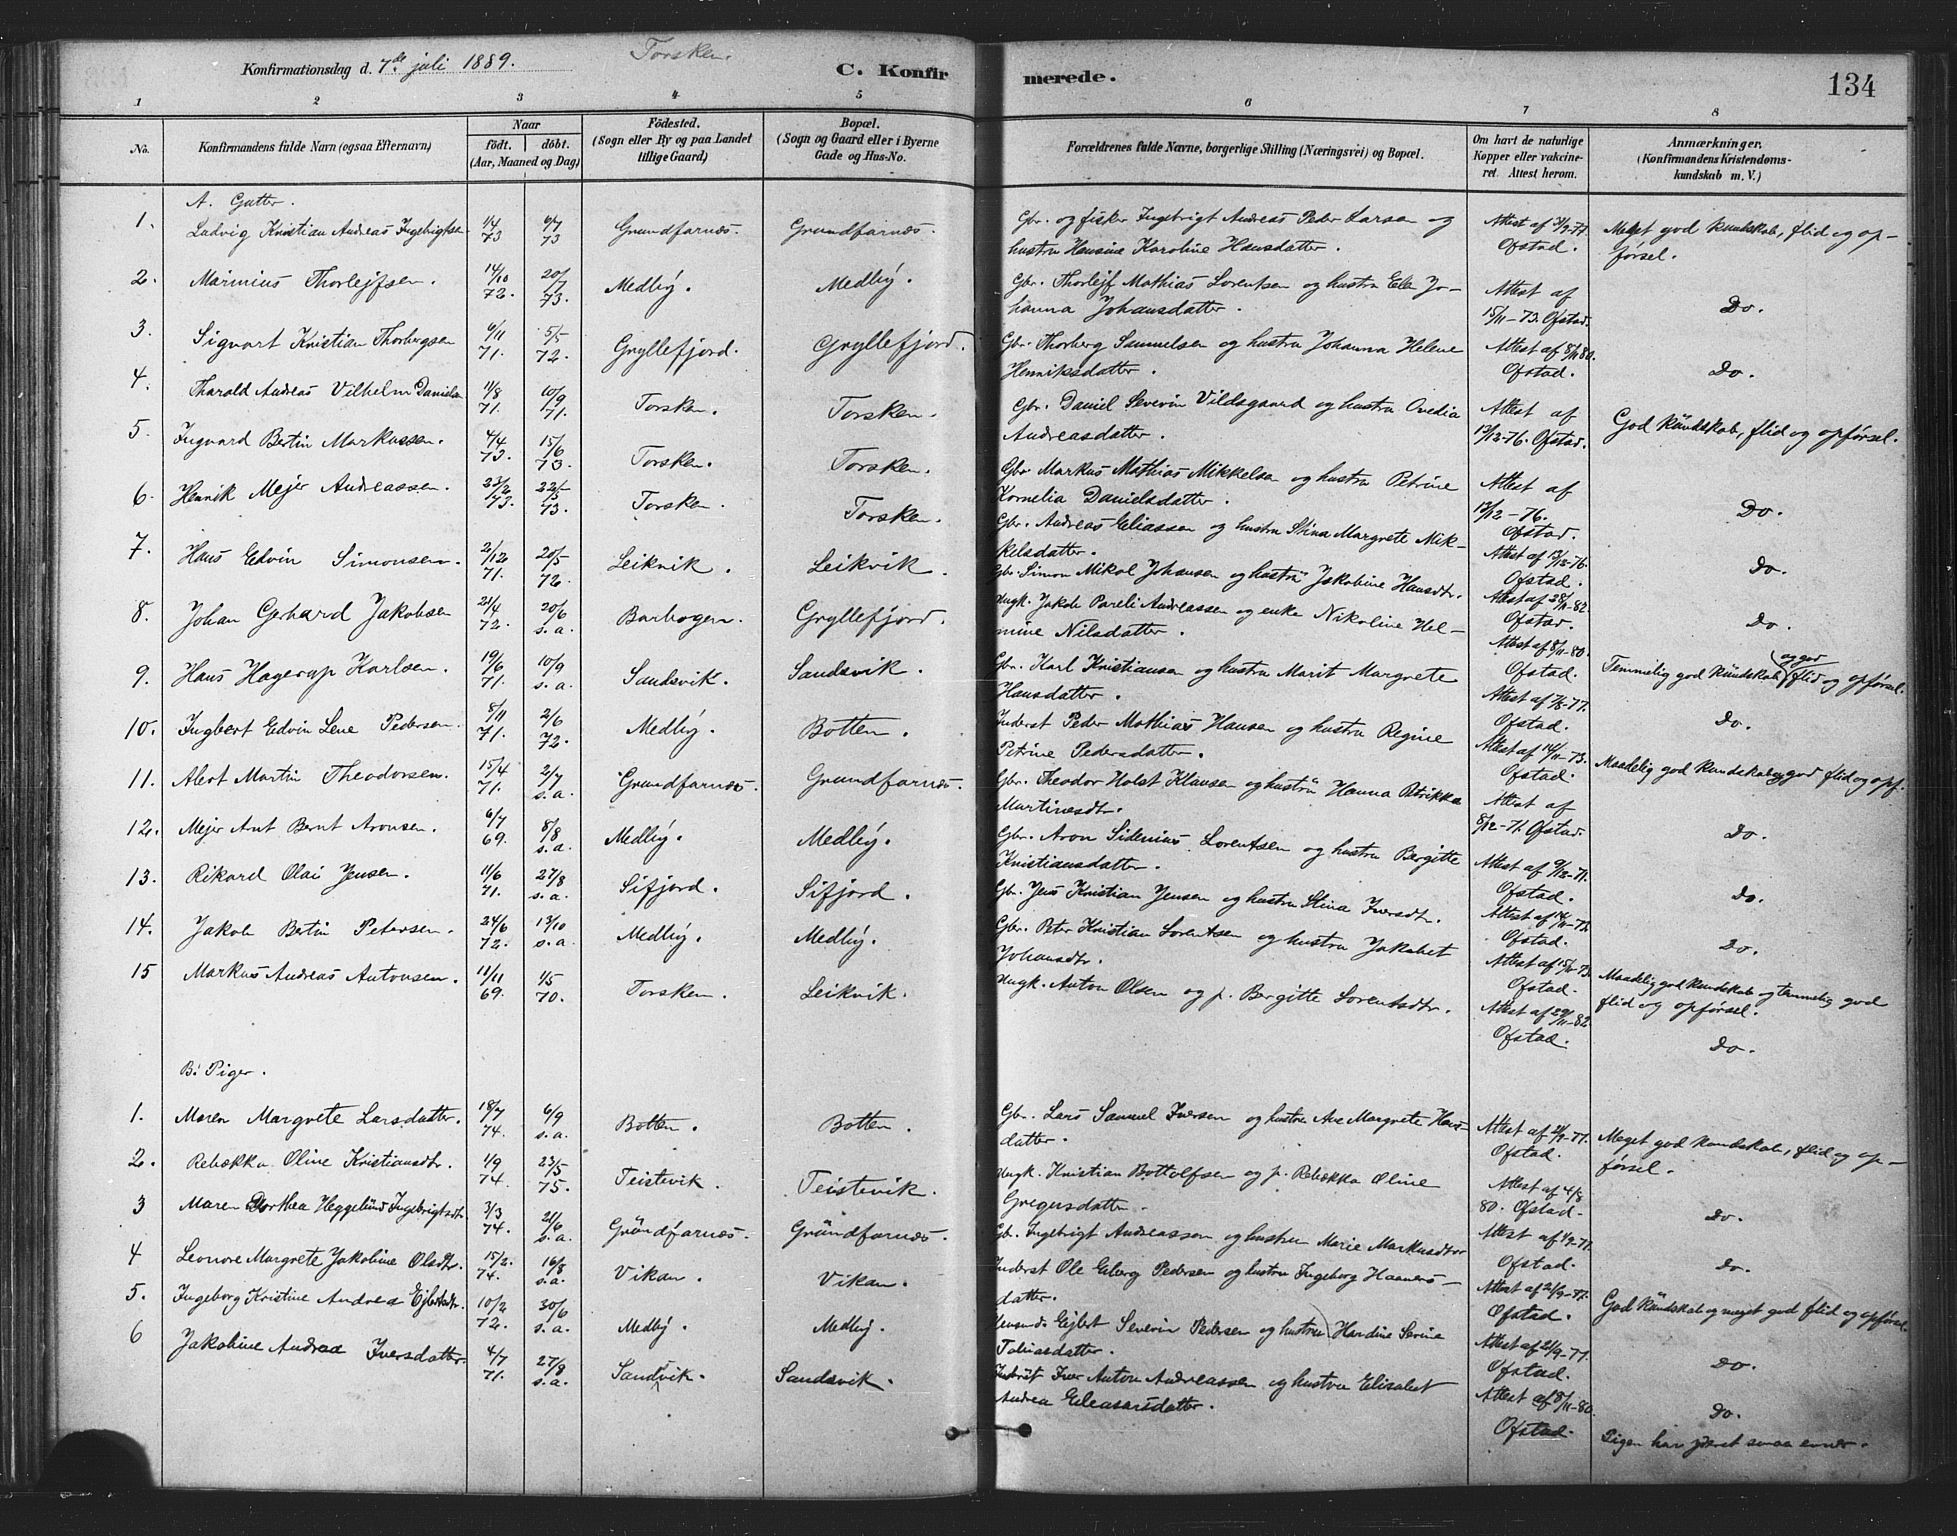 Konfirmationsdag d. 7de juli 1889. Torsken. C. Konfirmerede. 134
1 2 3 4 5 6 7 8
No. Konfirmandens fulde Navn (ogsaa Efternavn) Naar födt. döbt. (Aar, Maaned og Dag) Födested. (Sogn eller By og paa Landet tillige Gaard) Bopæl. (Sogn og Gaard eller i Byerne Gade og Hus-No. Forældrenes fulde Navne, borgerlige Stilling (Næringsvei) og Bopæl. Om havt de naturlige Kopper eller vakcineret. Attest herom. Anmærkninger. (Konfirmandens Kristendomskundskab m. V.)
A. Gutter.
1. Ludvig Kristian Andreas Ingebrigtsen 73 6/7 73 Grundfarnæs. Grundfarnæs. Gbr. og fisker Ingebrigt Andreas Peder Larsen og hustru Hensine Karoline Hansdatter. Attest af Ofstad. Meget god kundskab, flid og opførsel.
2. Marinius Thorlejfsen. 14/10 72. 20/7 73. Medby. Medby. Gbr. Thorlejf Mathias Lorentsen og hustru Ellen Johanna Johansdatter. Attest af 15/11-73. Ofstad. Do.
3. Sigvart Kristian Thorbergsen 6/11 71. 5/5 72. Gryllefjord. Gryllefjord. Gbr. Thorberg Samuelsen og hustru Johanna Helene Henriksdatter. Attest af 8/11 80. Ofstad. Do.
4. Tharald Andreas Vilhelm Danielsen 11/8 71. 10/9 71. Torsken. Torsken. Gbr. Daniel Severin Vildsgaard og hustru Ovedia Andreasdatter. Attest af 13/12-76. Ofstad. God kundskab, flid og opførsel.
5. Ingvard Bertin Markussen. 4/4 73. 15/6 73. Torsken. Torsken. Gbr. Markus Mathias Mikkelsen og hustru Petrine Kornelia Danielsdatter. Attest af 13/12-76. Ofstad. Do.
6. Henrik Mejer Andreassen. 23/2 73. 22/5 73. Torsken. Torsken. Gbr. Andreas Eliassen og hustru Stina Margrete Mikkelsdatter. Attest af 13/12-76. Ofstad. Do.
7. Hans Edvin Simonsen. 2/12 71. 20/5 72. Leikvik. Leikvik. Gbr. Simon Mikal Johansen og hustru Jakobine Hansdtr. Attest af 28/11-82. Ofstad. Do.
8. Johan Gerhard Jakobsen 21/4 72. 20/6 s.a. Barbogen. Gryllefjord. Ungk. Jakob Pareli Andreassen og enke Nikoline Helmine Nilsdatter. Attest af 8/11-80. Ofstad. Temmelig god kundskab og god flid og opførsel.
9. Hans Hagerup Karlsen. 19/6 71. 10/9 s.a. Sandsvik. Sandsvik. Gbr. Karl Kristiansen og hustru Marit Margrete Hansdatter. Attest af Ofstad. Do.
10. Ingbert Edvin Lene Pedersen. 8/11 71. 2/6 72. Medby. Botten. Inderst Peder Mathias Hansen og hustru Regine Petrine Pedersdatter. Attest af 14/11-73. Ofstad. Maadelig god kundskab, god flid og opf.
11. Alert Martin Theodorsen. 15/4 71. 2/7 s.a. Grundfarnæs. Grundfarnæs. Gbr. Theodor Holst Klausen og hustru Hanna Petrikka Martinesdtr. Attest af 8/12-71. Ofstad. Do.
12. Mejer Ant Bernt Aronsen. 6/7 69. 8/8 s.a. Medby. Medby. Gbr. Aron Sidenius Lorentsen og hustru Bergitte Kristiansdatter. Attest af 9/12-71. Ofstad. Do.
13. Rikard Olai Jensen. 11/6 71. 27/8 s.a. Sifjord. Sifjord. Gbr. Jens Kristian Jensen og hustru Stina Iversdtr. Attest af 14/11-72. Ofstad. Do.
14. Jakob Bertin Petersen. 24/6 72. 13/10 s.a. Medby. Medby. Gbr. Peter Kristian Lorentsen og hustru Jakobet Johansdtr. Attest af 15/11-73. Ofstad. Maadelig god kundskab og temmelig god flid og opførsel.
15 Markus Andreas Antonsen. 11/11 69. 1/5 70. Torsken. Leikvik. Ungk. Anton Olsen og p. Bergitte Lorentsdtr. Attest af 29/11-82. Ofstad. Do.
B. Piger.
1. Maren Margrete Larsdatter. 18/7 74. 6/9 s.a. Botten. Botten. Gbr. Lars Samuel Iversen og hustru Ane Margrete Hansdatter. Attest af 21/9-77. Ofstad. Meget god kundskab, flid og opførsel.
2. Rebækka Oline Kristiansdtr. 1/9 74. 23/5 75. Teistevik. Teistevik. Ungk. Kristian Bottolfsen og p. Rebækka Oline Gregusdatter. Attest af 4/8 80. Ofstad. Do.
3 Maren Dorthea Heggelund Ingebrigtsdtr. 3/3 74. 21/6 s.a. Grundfarnæs. Grundfarnæs. Gb. Ingebrigt Andreassen og hustru Marie Markusdtr Attest af Ofstad. Do.
4 Leonore Margrete Jakobine Olsdtr. 15/2. 74. 16/8 s.a. Vikan. Vikan. Inderst Ole Elberg Pedersen og hustru Ingeborg Haagensdatter. Attest af 21/9-77. Ofstad. God kundskab og meget god flid og opførsel
5. Ingeborg Kristine Andrea Ejlertsdtr. 10/2 72. 30/6 s.a. Medby. Medby. Ejlert Severin Pedersen og hustru Hardine Serine Tobiasdatter. Attest af 21/9-77. Ofstad. Do.
6 Jakobine Andrea Iversdatter. 4/7 71. 27/8 s.a. Sandsvik. Sandsvik. Inderst Iver Anton Andreassen og hustru Elisabet Andrea Eleasarsdatter. Attest af 8/11-80. Ofstad. Do.
Pigen har været smaa evner.